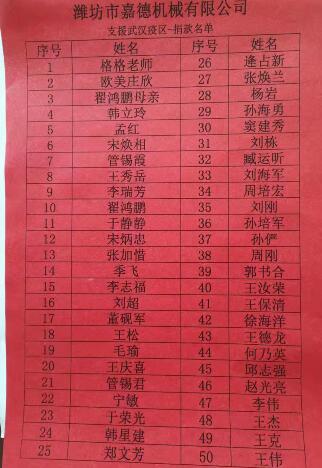 潍坊市嘉德机械有限公司
支援武汉疫区-捐款名单
序号 姓名 序号 姓名
1 格格老师 26 逄占新
2 欧美庄欣 27 张焕兰
3 翟鸿鹏母亲 28 杨岩
4 韩立玲 29 孙海勇
5 孟红 30 窦建秀
6 宋焕相 31 刘栋
7 管锡霞 32 臧运昕
8 王秀岳 33 刘海军
9 李瑞芳 34 周培宏
10 翟鸿鹏 35 刘刚
11 于静静 36 孙培军
12 宋炳忠 37 孙俨
13 张加惜 38 周刚
14 季飞 39 郭书合
15 李志福 40 王汝荣
16 刘超 41 王保清
17 董砚军 42 徐海洋
18 王松 43 王德龙
19 毛瑜 44 何乃英
20 王庆喜 45 邱志强
21 管锡君 46 赵光亮
22 宁敏 47 李伟
23 于荣光 48 王杰
24 韩星建 49 王克
25 郑文芳 50 王伟